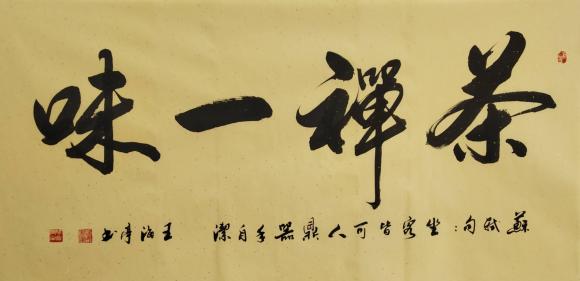 茶禪一味
蘇軾句：坐客皆可人鼎器手自潔 王海濤書